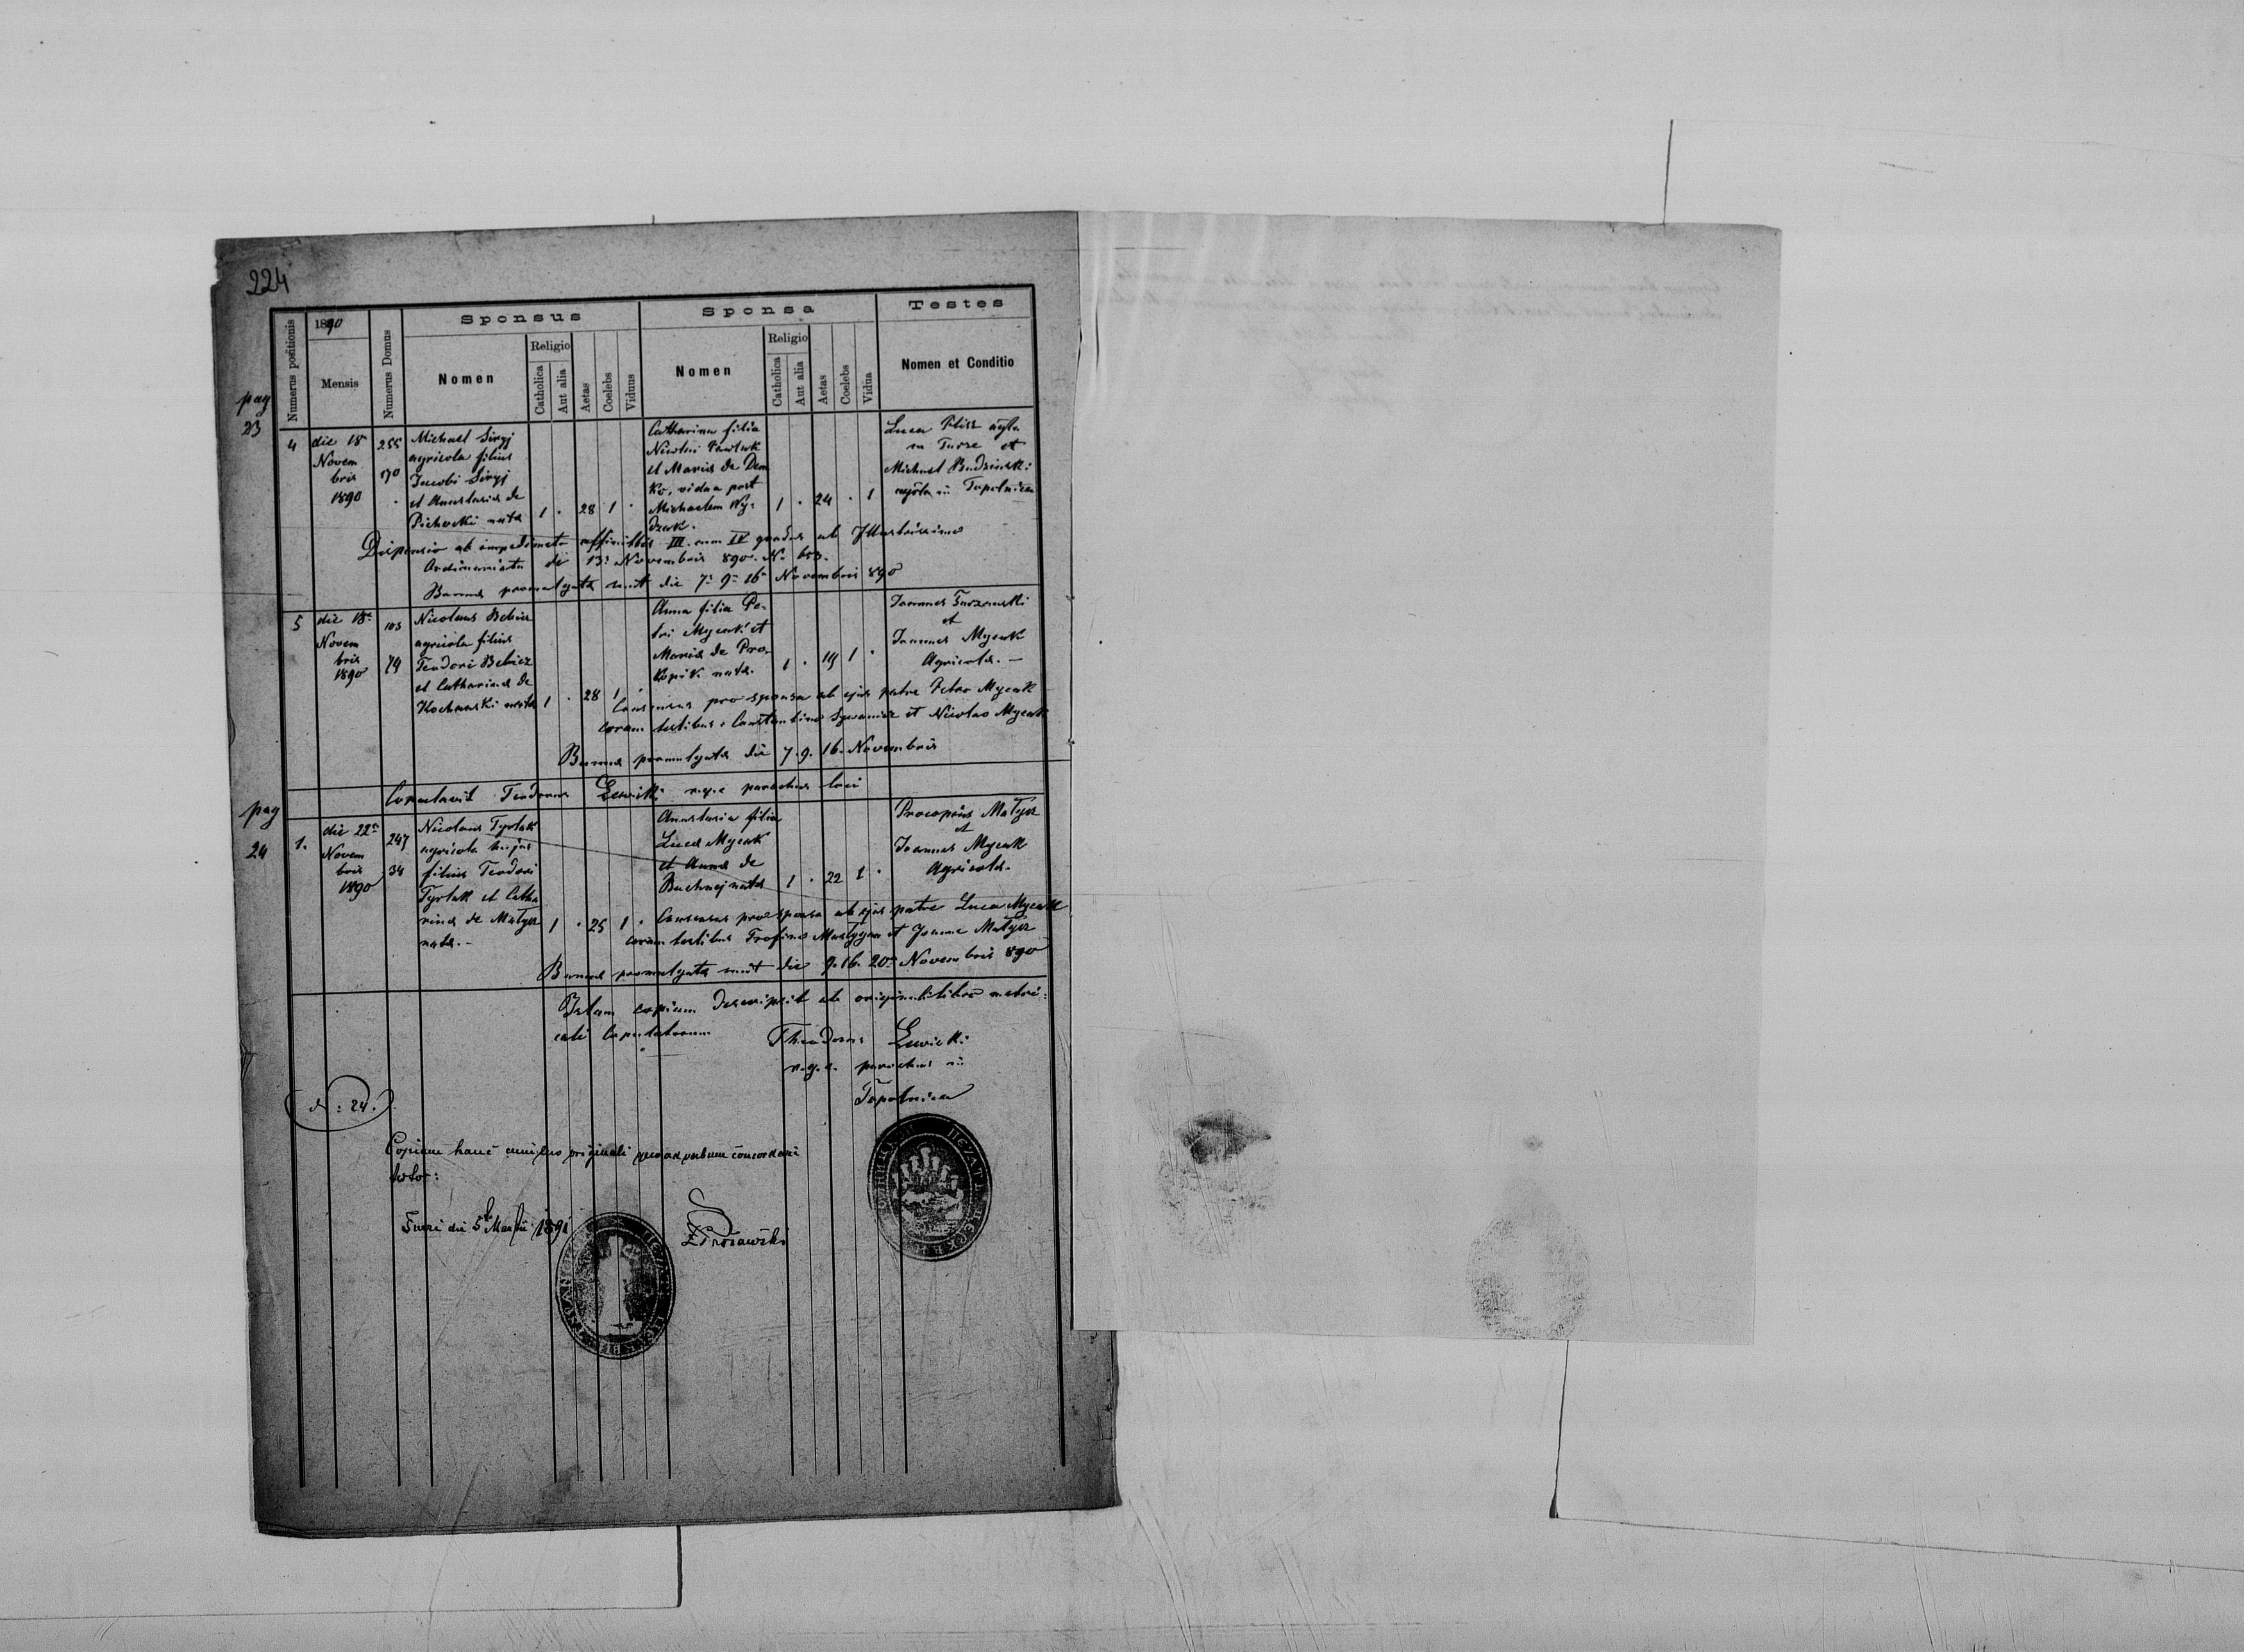 224
Numerus positionis
1890
Mensis
Numerus Domus
Sponsus
Nomen
Religio
Catholica
Aut alia
Aetas
Coelebs
Viduus
Sponsa
Nomen
Religio
Catholica
Aut alia
Aetas
Coelebs
Vidua
Testes
Nomen et Conditio
pag
23
4
die 18a
Novem
bris
1890
255
170
Michael Siryj
agricola filius
Jacobi Siryj
et Anastasia de
nata
1 . 28 1 .
Catharina filia
Nicolai Pawluk
et Maria de Dem
ko, vidua post
Michaelem Wy-
1 . 24 . 1
Luca
in Turze et
Michael Budzinski
in Topolnica
Dispensio ab impedimento affinitatis III. cum IV gradus ab Illustrissimo
Ordinariatu de 13. Novembris 890. No 653.
Banna promulgata sunt die 7a 9a 16a Novembris 890
5
die 18a
Novem
bris
1890
103
79
Nicolaus Bebisz
agricola filius
Teodori Bebisz
et Catharina de
Kochanski nata
1 . 28 1 .
Anna filia Pe-
tri Mycak et
Maria de Pro-
kopik nata.
1 . 19 1 .
Joannes Turzanski
et
Joannes Mycak
Agricola. —
Consensus pro sponsa ab ejus patre Petro Mycak
coram testibus: Constantino et Nicolao Mycak
Banna promulgata die 7. 9. 16. Novembris
Copulavit Teodorus Lewicki r.g.c parochus loci
pag
24
1.
die 22a
Novem
bris
1890
247
34
Nicolaus Tyrlak
agricola hujus
filius Teodori
Tyrlak et Catha
rina de Matysz
nata. -
1 . 25 1 .
Anastasia filia
Luca Mycak
et Anna de
Buchnej nata
1 . 22 1 .
Procopius Matysz
et
Joannes Mycak
Agricola.
Consensus pro sponsa ab ejus patre Luca Mycak
coram testibus Trofimo et Joanne Matysz
Banna promulgata sunt die 9. 16. 20a Novembris 890
Istam copiam descripsit ab originali libro metri-
cali Copulatorum
Theodorus Lewicki
r.g.c. parochus in
Topolnica
N: 24.
Copiam hanc cum suo originali quoad verbum concordare
testor:
Turze die 5 Martii 1891